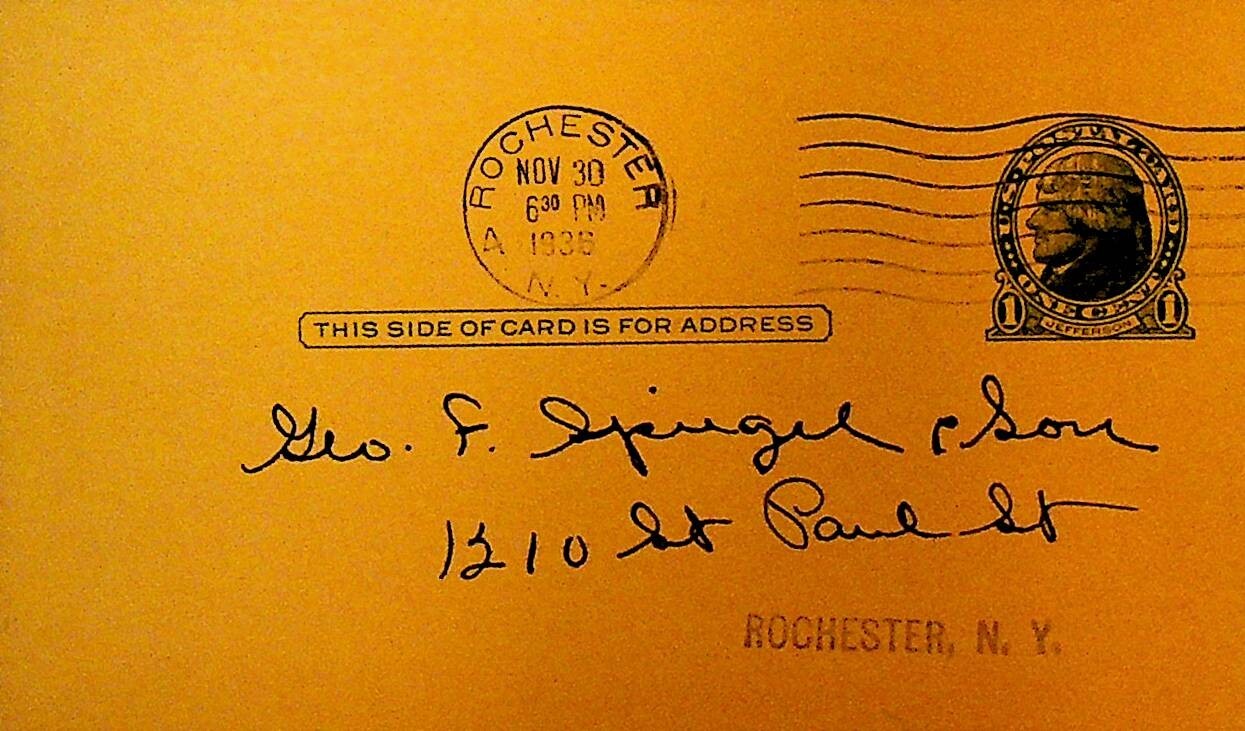 ROCHESTER
NOV 30
6³⁰ PM
A 1936
N. Y.
U.S. POSTAL CARD
ONE CENT
1 JEFFERSON 1
THIS SIDE OF CARD IS FOR ADDRESS
Geo. F. Spiegel & Son
1210 St Paul St
ROCHESTER, N. Y.